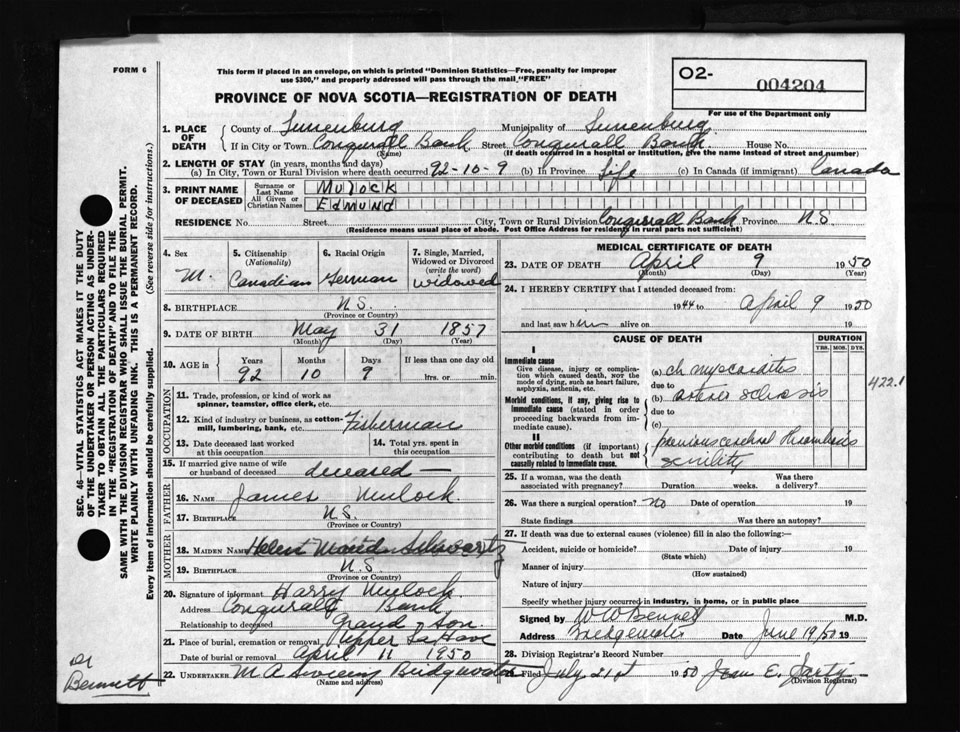 FORM 6
This form if placed in an envelope, on which is printed "Dominion Statistics—Free, penalty for improper
use $300," and properly addressed will pass through the mail, "FREE"
O2- 004204
PROVINCE OF NOVA SCOTIA—REGISTRATION OF DEATH
For use of the Department only
1. PLACE OF DEATH
County of Lunenburg Municipality of Lunenburg
If in City or Town Conquerall Bank Street Conquerall Bank House No.
(Name) (If death occurred in a hospital or institution, give the name instead of street and number)
2. LENGTH OF STAY (in years, months and days)
(a) In City, Town or Rural Division where death occurred 92-10-9 (b) In Province Life (c) In Canada (if immigrant) Canada
3. PRINT NAME OF DECEASED
Surname or Last Name Mulock
All Given or Christian Names Edmund
RESIDENCE No. Street City, Town or Rural Division Conquerall Bank Province N.S.
(Residence means usual place of abode. Post Office Address for residents in rural parts not sufficient)
4. Sex M.
5. Citizenship (Nationality) Canadian
6. Racial Origin German
7. Single, Married, Widowed or Divorced (write the word) widowed
8. BIRTHPLACE N.S.
(Province or Country)
9. DATE OF BIRTH May 31 1857
(Month) (Day) (Year)
10. AGE in Years Months Days If less than one day old
92 10 9 hrs. or min.
OCCUPATION
11. Trade, profession, or kind of work as
spinner, teamster, office clerk, etc.
12. Kind of industry or business, as cotton-
mill, lumbering, bank, etc. Fisherman
13. Date deceased last worked
at this occupation
14. Total yrs. spent in
this occupation
15. If married give name of wife
or husband of deceased deceased —
FATHER
16. NAME James Mulock.
17. BIRTHPLACE N.S.
(Province or Country)
MOTHER
18. MAIDEN NAME Helen Schwartz
19. BIRTHPLACE N.S.
(Province or Country)
20. Signature of informant Harry Mulock
Address Conquerall Bank
Relationship to deceased Grand Son.
21. Place of burial, cremation or removal Upper LaHave
Date of burial or removal April 11 1950
22. UNDERTAKER M A Bridgewater
(Name and address)
MEDICAL CERTIFICATE OF DEATH
23. DATE OF DEATH April 9 1950
(Month) (Day) (Year)
24. I HEREBY CERTIFY that I attended deceased from:
1944 to April 9 1950
and last saw him alive on 19
CAUSE OF DEATH
DURATION
YRS. MOS. DYS.
I
Immediate cause
Give disease, injury or complica-
tion which caused death, not the
mode of dying, such as heart failure,
asphyxia, asthenia, etc.
(a) ch myocarditis
due to
Morbid conditions, if any, giving rise to
immediate cause (stated in order
proceeding backwards from im-
mediate cause).
(b) arterio sclerosis
422.1
due to
(c)
II
Other morbid conditions (if important)
contributing to death but not
causally related to immediate cause.
previous cerebral thrombosis
senility
25. If a woman, was the death
associated with pregnancy? Duration weeks. Was there
a delivery?
26. Was there a surgical operation? no Date of operation 19
State findings Was there an autopsy?
27. If death was due to external causes (violence) fill in also the following:—
Accident, suicide or homicide? Date of injury 19
(State which)
Manner of injury
(How sustained)
Nature of injury
Specify whether injury occurred in industry, in home, or in public place
Signed by W W Bennett M.D.
Address Bridgewater Date June 19/50 19
28. Division Registrar's Record Number
Filed July 21st 1950 Jean E. Sarty
(Division Registrar)
SEC. 46—VITAL STATISTICS ACT MAKES IT THE DUTY
OF THE UNDERTAKER OR PERSON ACTING AS UNDER-
TAKER TO OBTAIN ALL THE PARTICULARS REQUIRED
IN THE "REGISTRATION OF DEATH" AND TO FILE THE
SAME WITH THE DIVISION REGISTRAR WHO SHALL ISSUE THE BURIAL PERMIT.
WRITE PLAINLY WITH UNFADING INK. THIS IS A PERMANENT RECORD.
Every item of information should be carefully supplied. (See reverse side for instructions.)
Dr
Bennett